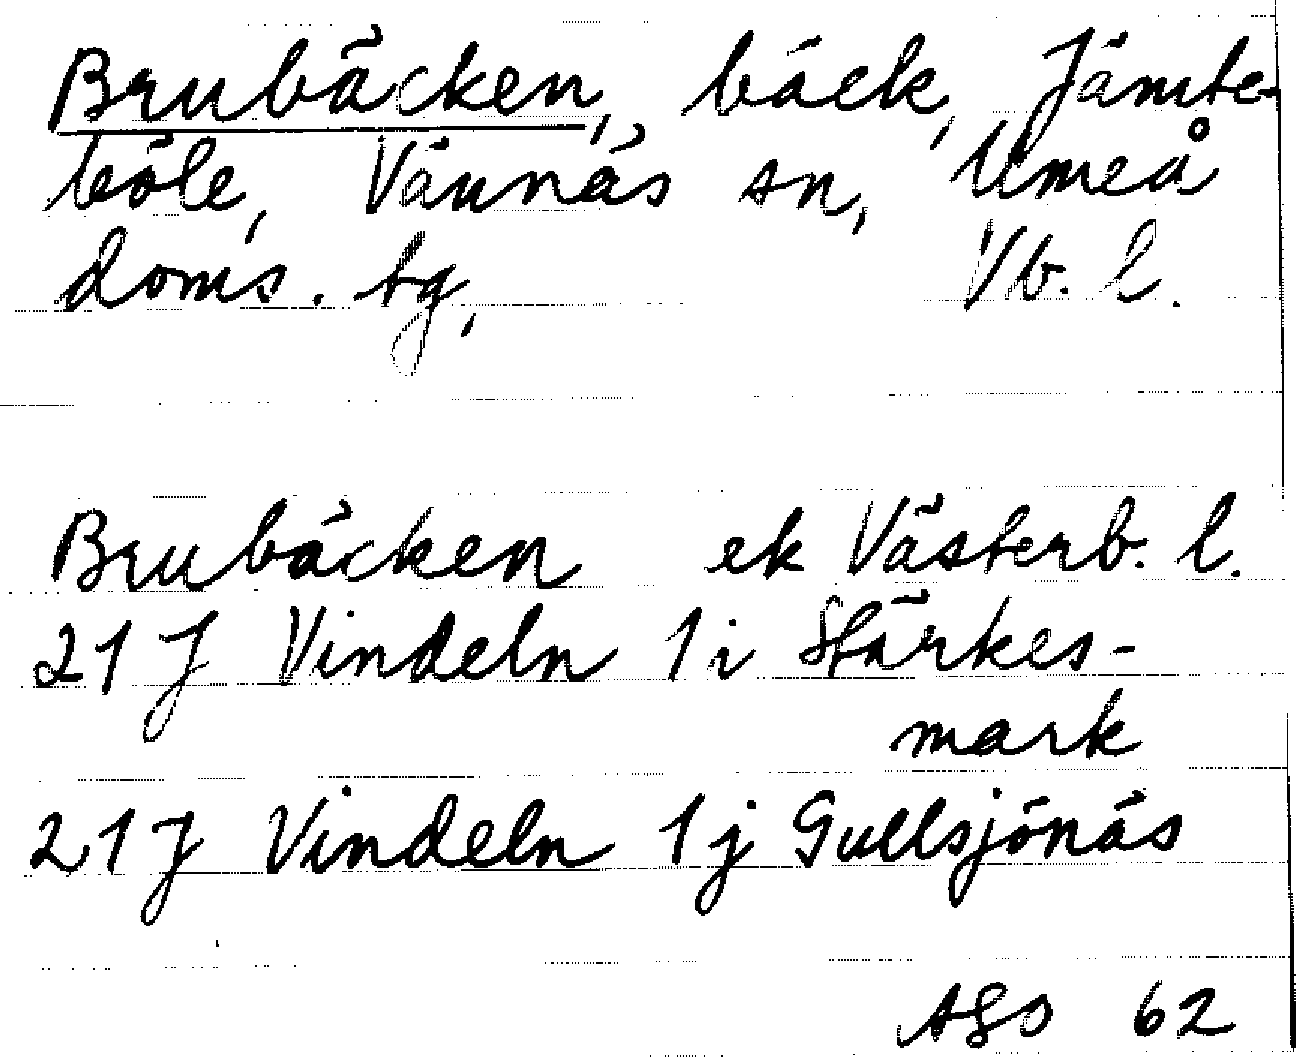 Brubäcken, bäck, Jämte-
böle, Vännäs sn, Umeå
doms. tg, Vb. l.
Brubäcken ek Västerb. l.
21 J Vindeln 1 i Stärkes-
mark
21 J Vindeln 1 j Gullsjönäs
AGO 62